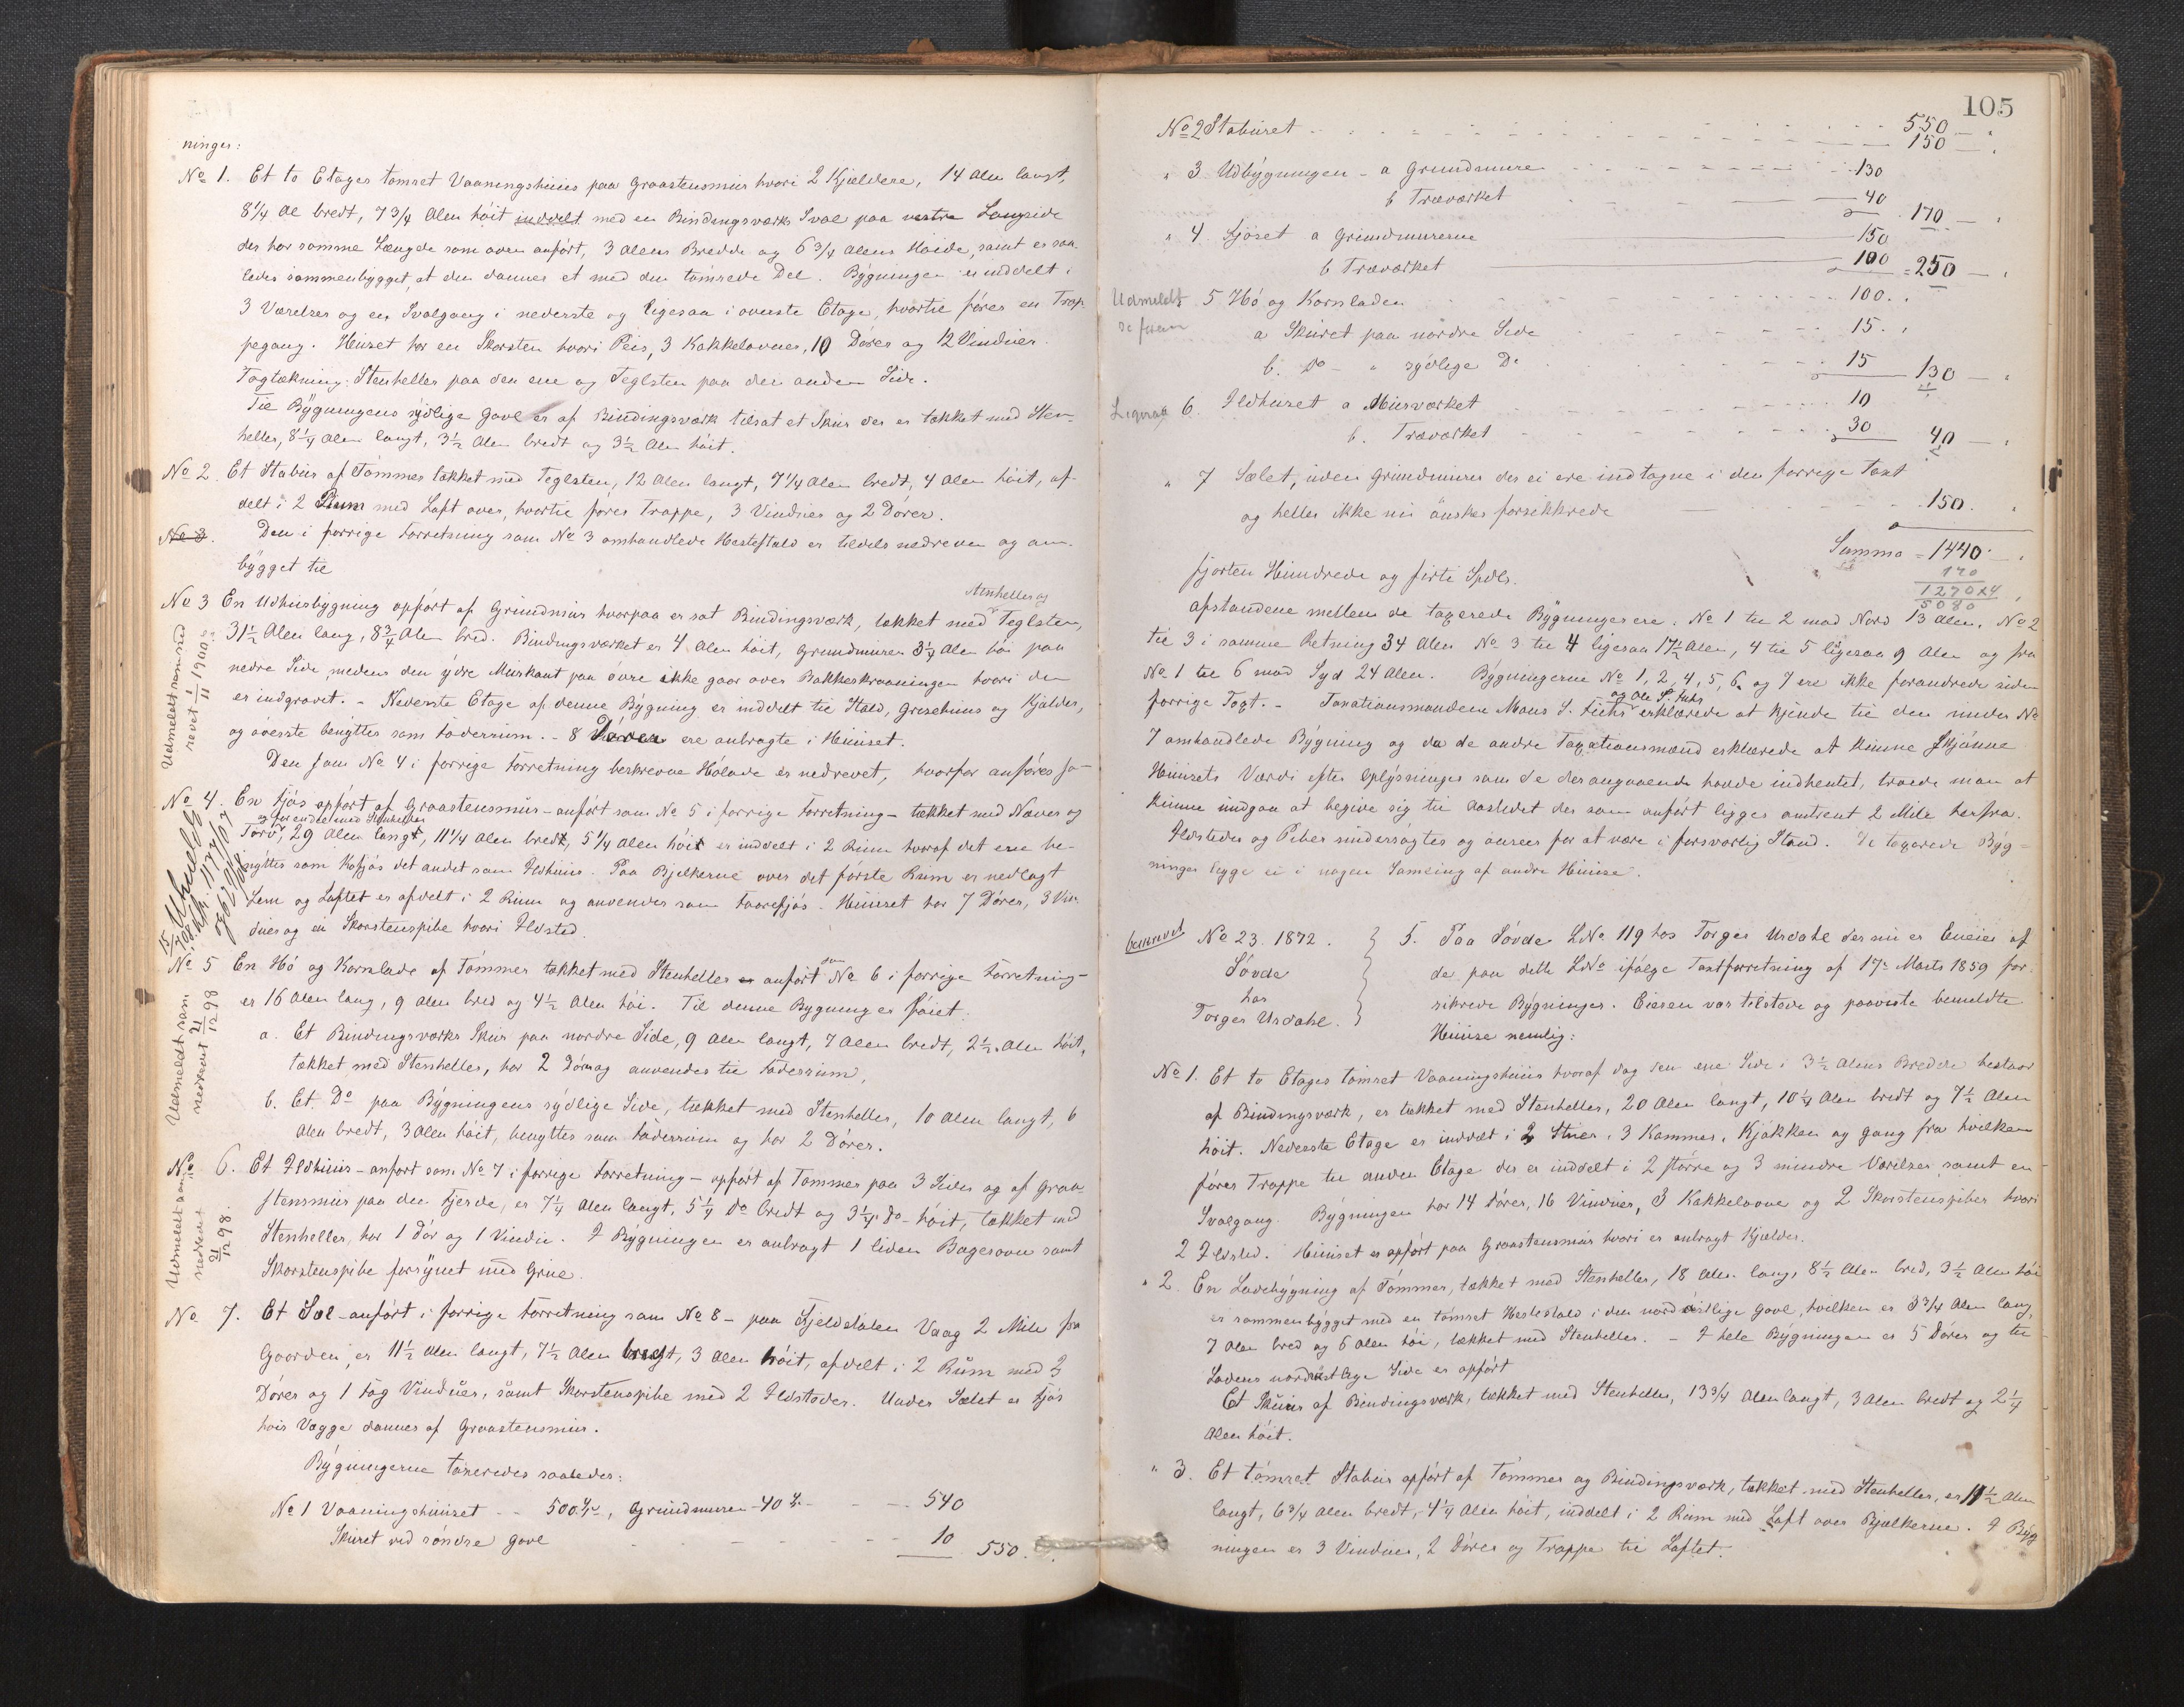 ninger:
No 1. Et to Etages tømret Vaaningshuus paa Graastensmuur hvori 2 Kjeldere, 14 Alen langt,
8 1/4 Al bredt, 7 3/4 Alen høit inddelt med en Bindingsværks Sval paa vestre Langside
der har samme Længde som oven anført, 3 Alens Bredde og 6 3/4 Alens Høide, samt er saa-
ledes sammenbygget, at den danner et med den tømrede Del. Bygningen er inddelt i
3 Værelser og en Svalgang i nederste og ligesaa i øverste Etage, hvortil fører en Trap-
pegang. Huset har en Skorsten hvori Peis, 3 Kakkelovner, 10 Døres og 12 Vinduer.
Tagtækning: Stenheller paa den ene og Teglsten paa den anden Side.
Til Bygningens sydlige Gavl er af Bindingsværk tilsat et Skur der er tækket med Sten-
heller, 8 1/4 Alen langt, 3 1/2 Alen bredt og 3 1/2 Alen høit.
No 2. Et Stabur af Tømmer tækket med Teglsten, 12 Alen langt, 7 1/4 Alen bredt, 4 Alen høit, af-
delt i 2 Rum med Loft over, hvortil fører Trappe, 3 Vinduer og 2 Døre.
No 3. Den i forrige Forretning som No 3 omhandlede Hestestald er tildels nedreven og om-
bygget til
Stenheller og
No 3 En Udhuusbygning opført af Grundmuur hvorpaa er sat Bindingsværk, tækket med Teglsten,
31 1/2 Alen lang, 8 3/4 Alen bred. Bindingsværket er 4 Alen høit, Grundmuren 3 1/4 Alen høi paa
nedre Side, medens den ydre Muurkant paa øvre ikke gaar over Bakkeskraaningen hvori den
er indgravet. - Nederste Etage af denne Bygning er inddelt til Stald, Grisehuus og Kjelder,
og øverste benyttes som Foderrum. - 8 Døres ere anbragte i Huuset.
Udmeldt som ned
revet 1/11 1900
Den som No 4 i forrige Forretning beskrevne Hølade er nedrevet, hvorfor anføres so-
No 4. En Fjøs opført af Graastensmuur - anført som No 5 i forrige Forretning - tækket med Næver og
og forendel med Stenheller
Torv, 29 Alen langt, 11 1/4 Alen bredt, 5 1/4 Alen høit er inddelt i 2 Rum hvoraf det ene be-
nyttes som Kofjøs det andet som Ildhuus. Paa Bjelkerne over det første Rum er nedlagt
Lem og Loftet er afdelt i 2 Rum og anvendes som Faarefjøs. Huuset har 7 Døres, 3 Vin-
duer og en Skorstenspibe hvori Ildsted.
No 5 En Hø og Kornlade af Tømmer tækket med Stenheller er anført som No 6 i forrige Forretning -
er 16 Alen lang, 9 Alen bred og 4 1/2 Alen høi. Til denne Bygning er føiet:
a. Et Bindingsværks Skur paa nordre Side, 9 Alen langt, 7 Alen bredt, 2 1/2 Alen høit,
tækket med Stenheller, har 2 Døre og anvendes til Foderrum,
b. Et Do paa Bygningens sydlige Side, tækket med Stenheller, 10 Alen langt, 6
Alen bredt, 3 Alen høit, benyttes som Foderrum og har 2 Døres.
Udmeldt som
nedrevet 21/12 98
No 6. Et Ildhuus - anført som No 7 i forrige Forretning - opført af Tømmer paa 3 Sider og af Graa-
stensmuur paa den fjerde, er 7 1/4 Alen langt, 5 1/4 Do bredt og 3 1/4 Do høit, tækket med
Stenheller, har 1 Dør og 1 Vindu. I Bygningen er anbragt 1 liden Bagerovn samt
Skorstenspibe forsynet med Grue.
Udmeldt som
nedrevet
21/12 98.
No 7. Et Sel - anført i forrige Forretning som No 8 - paa Fjeldstølen Vaag 2 Mile fra
Gaarden, er 11 1/2 Alen langt, 7 1/2 Alen bredt, 3 Alen høit, afdelt i 2 Rum med 3
Døres og 1 Fag Vinduer, samt Skorstenspibe med 2 Ildsteder. Under Sælet er Fjøs
hvis Vægge dannes af Graastensmuur.
Bygningerne taxeredes saaledes:
No 1 Vaaningshuuset - - 500, Grundmuren 40 - - - 540
Skuret ved søndre Gavl - - - - - 10 550.
105
No 2 Staburet - - - - - - 550
150
" 3 Udbygningen - a Grundmure - - - 130
b Træværket - - - 40 170 -
" 4. Fjøset a Grundmurerne 150
b Træværket 100 250 -
Udmeldt 5 Hø og Kornladen - - - 100.
a Skuret paa nordre Side - - - 15.
b. Do - " sydlige Do - - - 15 130 -
Ligesaa 6. Ildhuset a Muurværket - - - 10
b. Træværket - - - 30 40 -
" 7 Sælet, uden Grundmurer der ei ere indtagne i den forrige Taxt
og heller ikke nu ønskes forsikkrede - - - 150.
Summa 1440
170
1270 x 4
5080
fjorten Hundrede og firti Spdlr.
Afstandene mellem de taxerede Bygninger ere: No 1 til 2 mod Nord 13 Alen, No 2
til 3 i samme Retning 34 Alen No 3 til 4 ligesaa 17 1/2 Alen, 4 til 5 ligesaa 9 Alen og fra
No 1 til 6 mod Syd 24 Alen. Bygningerne No 1, 2, 4, 5, 6 og 7 ere ikke forandrede siden
forrige Taxt. - Taxationsmændene Mons S. og Ole S. erklærede at kjende til den under No
7 omhandlede Bygning og da de andre Taxationsmænd erklærede at kunne skjønne
Huusets Værdi efter Oplysninger som de derangaaende havde indhentet, troede man at
kunne undgaa at begive sig til Aastedet der som anført ligger omtrent 2 Mile herfra.
Ildsteder og Piber undersøgtes og ansees for at være i forsvarlig Stand. De taxerede Byg-
ninger ligge ei i nogen Samling af andre Huuse.
beskrevet No 23. 1872.
Søvde
hos
Torger Urdahl.
5. Paa Søvde LNo 119 hos Torger Urdahl der nu er Eneeier af
de paa dette LNo ifølge Taxtforretning af 17. Marts 1859 for-
sikrede Bygninger. Eieren var tilstede og paaviste bemeldte
Huuse nemlig:
No 1. Et to Etages tømret Vaaningshuus hvoraf dog den ene Side i 3 1/2 Alens Bredde bestaar
af Bindingsværk, er tækket med Stenheller, 20 Alen langt, 10 1/4 Alen bredt og 7 1/2 Alen
høit. Nederste Etage er inddelt i 2 Stuer, 3 Kammer, Kjøkken og Gang fra hvilken
fører Trappe til anden Etage der er inddelt i 2 større og 3 mindre Værelser samt en
Svalgang. Bygningen har 14 Døres, 16 Vinduer, 3 Kakkelovne og 2 Skorstenspiber hvori
2 Ildsted. Huuset er opført paa Graastensmuur hvori er anbragt Kjelder.
" 2. En Ladebygning af Tømmer, tækket med Stenheller, 18 Alen lang, 8 1/2 Alen bred, 3 1/2 Alen høi
er sammenbygget med en tømret Hestestald i den nordøstlige Gavl, hvilken er 3 3/4 Alen lang,
7 Alen bred og 6 Alen høi, tækket med Stenheller. - I hele Bygningen er 5 Døres og til
Ladens nordvestlige Side er opført
Et Skuur af Bindingsværk, tækket med Stenheller, 13 3/4 Alen langt, 3 Alen bredt og 2 1/4
Alen høit.
" 3. Et tømret Stabur opført af Tømmer og Bindingsværk, tækket med Stenheller, er 11 1/2 Alen
langt, 6 3/4 Alen bredt, 4 1/4 Alen høit, inddelt i 2 Rum med Loft over Bjælkerne. I Byg-
ningen er 3 Vinduer, 2 Døres og Trappe til Loftet.